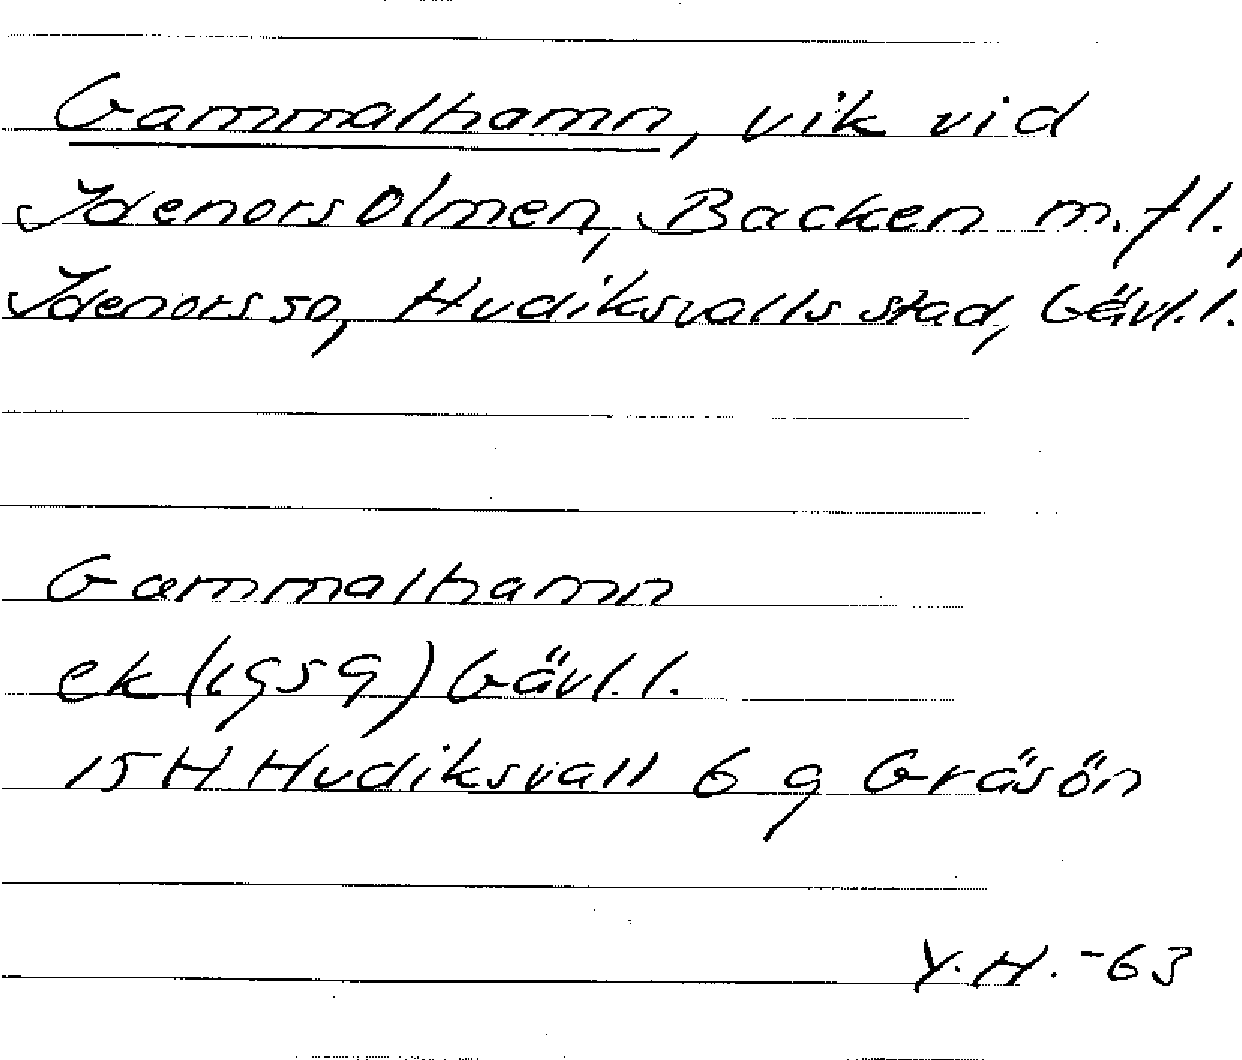 Gammalhamn, vik vid
Idenors Ölmen, Backen m. fl.,
Idenors sn, Hudiksvalls stad, Gävl. l.
Gammalhamn
ek (1959) Gävl. l.
15H Hudiksvall 6 g Gräsön
Y. H. -63